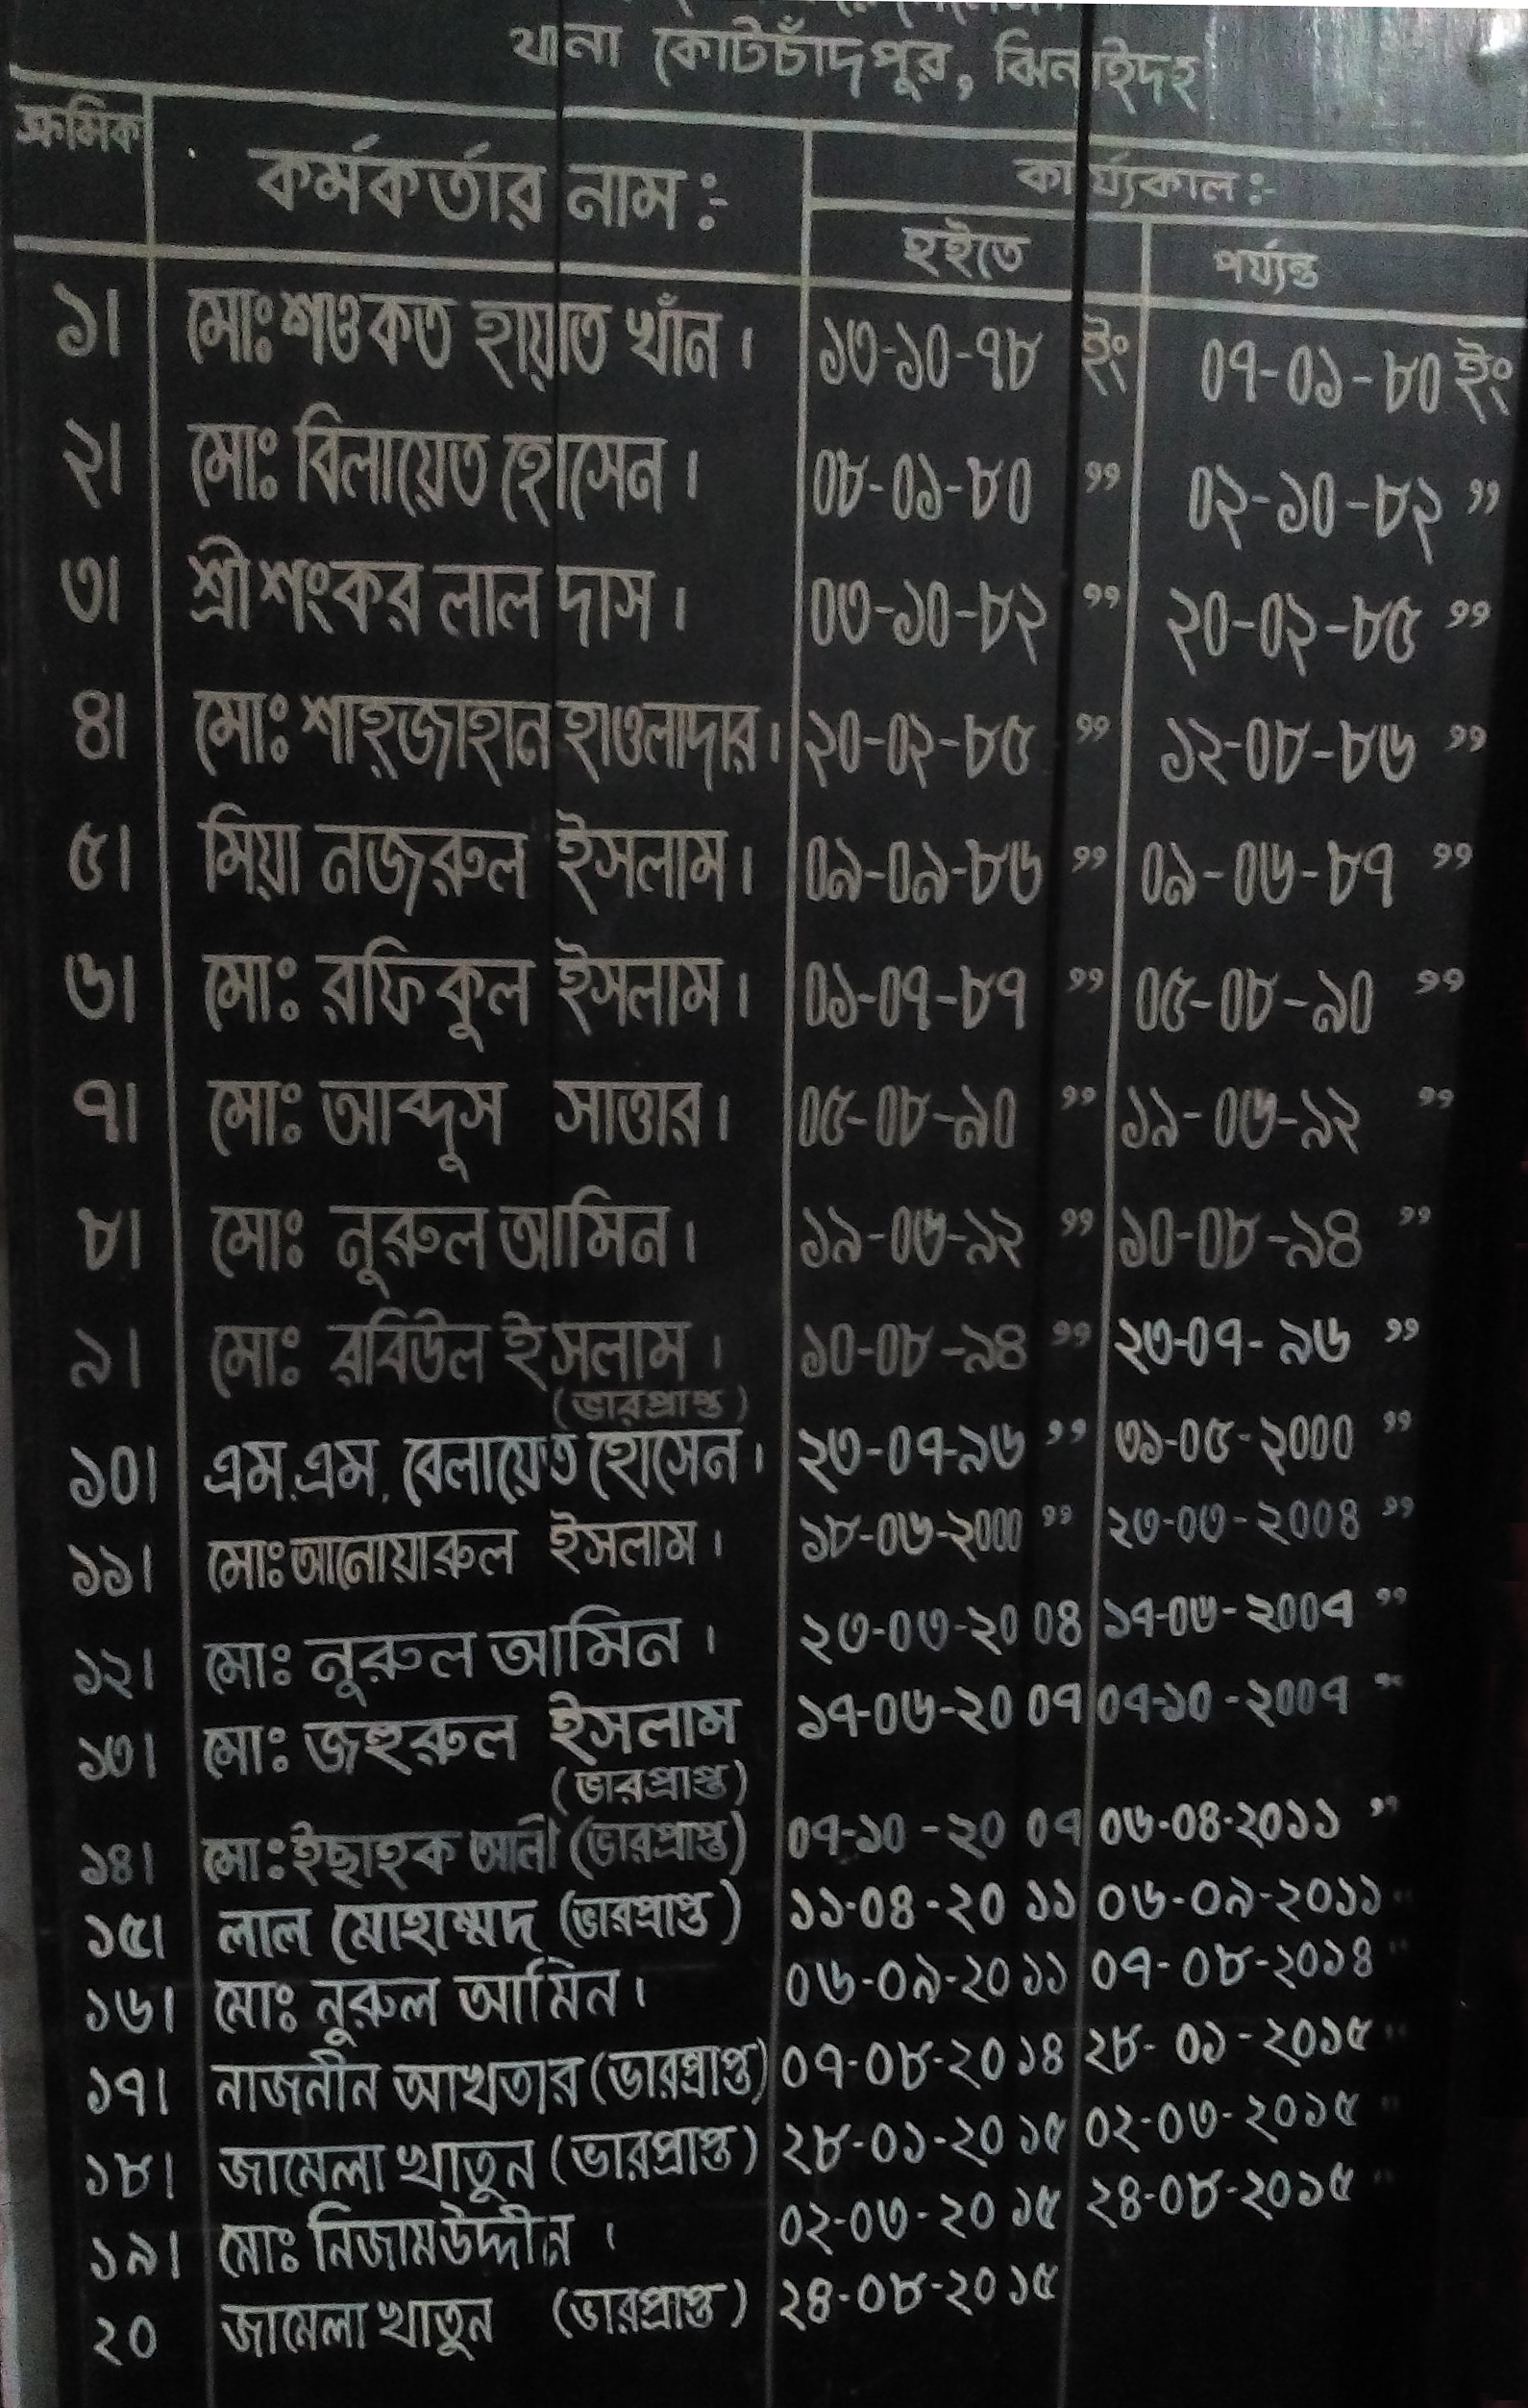 থানা কোটচাঁদপুর, ঝিনাইদহ
ক্রমিক কর্মকর্তার নাম :- কার্য্যকাল :-
হইতে পর্য্যন্ত
১। মোঃ শওকত হায়াত খাঁন। ১৩-১০-৭৮ ইং ০৭-০১-৮০ ইং
২। মোঃ বিলায়েত হোসেন। ০৮-০১-৮০ " ০২-১০-৮২ "
৩। শ্রী শংকর লাল দাস। ০৩-১০-৮২ " ২০-০২-৮৫ "
৪। মোঃ শাহ্জাহান হাওলাদার। ২০-০২-৮৫ " ১২-০৮-৮৬ "
৫। মিয়া নজরুল ইসলাম। ০৯-০৯-৮৬ " ০৯-০৬-৮৭ "
৬। মোঃ রফিকুল ইসলাম। ০১-০৭-৮৭ " ০৫-০৮-৯০ "
৭। মোঃ আব্দুস সাত্তার। ০৫-০৮-৯০ " ১৯-০৬-৯২ "
৮। মোঃ নুরুল আমিন। ১৯-০৬-৯২ " ১০-০৮-৯৪ "
৯। মোঃ রবিউল ইসলাম। ১০-০৮-৯৪ " ২৩-০৭-৯৬ "
(ভারপ্রাপ্ত)
১০। এম.এম. বেলায়েত হোসেন। ২৩-০৭-৯৬ " ৩১-০৫-২০০০ "
১১। মোঃ আনোয়ারুল ইসলাম। ১৮-০৬-২০০০ " ২৩-০৩-২০০৪ "
১২। মোঃ নুরুল আমিন। ২৩-০৩-২০০৪ ১৭-০৬-২০০৭ "
১৩। মোঃ জহুরুল ইসলাম ১৭-০৬-২০০৭ ০৭-১০-২০০৭ "
(ভারপ্রাপ্ত)
১৪। মোঃ ইছাহক আলী (ভারপ্রাপ্ত) ০৭-১০-২০০৭ ০৬-০৪-২০১১ "
১৫। লাল মোহাম্মদ (ভারপ্রাপ্ত) ১১-০৪-২০১১ ০৬-০৯-২০১১ "
১৬। মোঃ নুরুল আমিন। ০৬-০৯-২০১১ ০৭-০৮-২০১৪ "
১৭। নাজনীন আখতার (ভারপ্রাপ্ত) ০৭-০৮-২০১৪ ২৮-০১-২০১৫ "
১৮। জামেলা খাতুন (ভারপ্রাপ্ত) ২৮-০১-২০১৫ ০২-০৩-২০১৫ "
১৯। মোঃ নিজামউদ্দীন। ০২-০৩-২০১৫ ২৪-০৮-২০১৫ "
২০ জামেলা খাতুন (ভারপ্রাপ্ত) ২৪-০৮-২০১৫